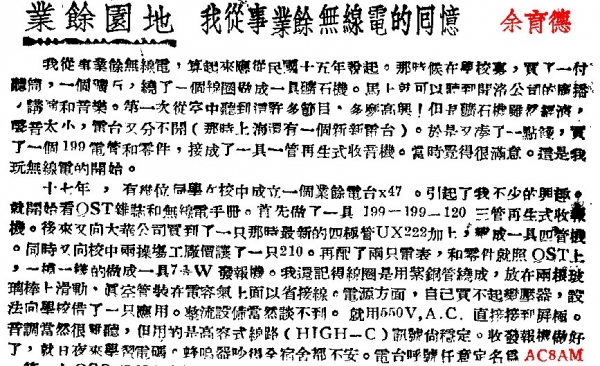 業餘園地 我從事業餘無線電的回憶 余育德
我從事業餘無線電,算起來應從民國十五年發起。那時候在學校裏,買了一付
聽筒,一個礦石,繞了一個線圈做成一具礦石機。馬上就可以聽到開洛公司的廣播
,講演和音樂。第一次從空中聽到這許多節目,多麼高興!但是礦石機雖然經濟,
聲音太小,電台又分不開(那時上海還有一個新新電台)。於是又湊了一點錢,買
了一個199電管和零件,接成了一具一管再生式收音機。當時覺得很滿意。這是我
玩無線電的開始。
十七年,有幾位同學在校中成立一個業餘電台x47。引起了我不少的興趣。
就開始看QST雜誌和無線電手冊。首先做了一具199—199—120三管再生式收報
機。後來又向大華公司買到了一只那時最新的四極管UX222加上,變成一具四管機
。同時又向校中兩操場工廠價讓了一只210。再配了兩只電表,和零件就照QST上
,一模一樣的做成一具7½W發報機。我還記得線圈是用紫銅管繞成,放在兩根玻
璃棒上滑動,真空管裝在電容氣上面以省接線。電源方面,自己買不起變壓器,設
法向學校借了一只應用。整流設備當然談不到。就用550V,A.C.直接接到屏極。
音調當然很難聽,但用的是高容式線路(HIGH—C)訊號尙穩定。收發報機做好
了,就日夜來學習電碼。蜂鳴器吵得全宿舍都不安。電台呼號任意定名爲AC8AM